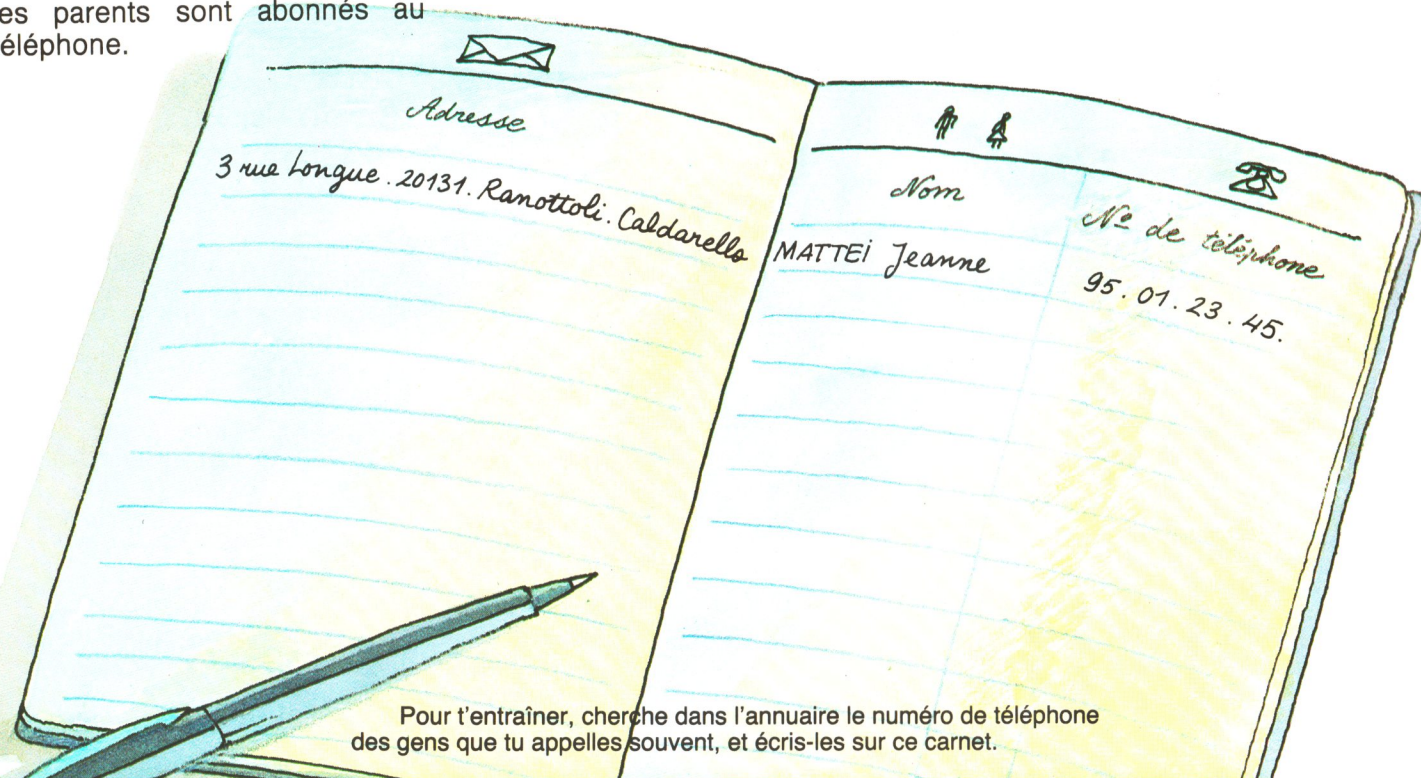 es parents sont abonnés au
éléphone.
Adresse
3 rue Longue. 20131. Ranottoli. Caldarello
Nom
N° de téléphone
MATTEI Jeanne
95. 01. 23. 45.
Pour t'entraîner, cherche dans l'annuaire le numéro de téléphone
des gens que tu appelles souvent, et écris-les sur ce carnet.